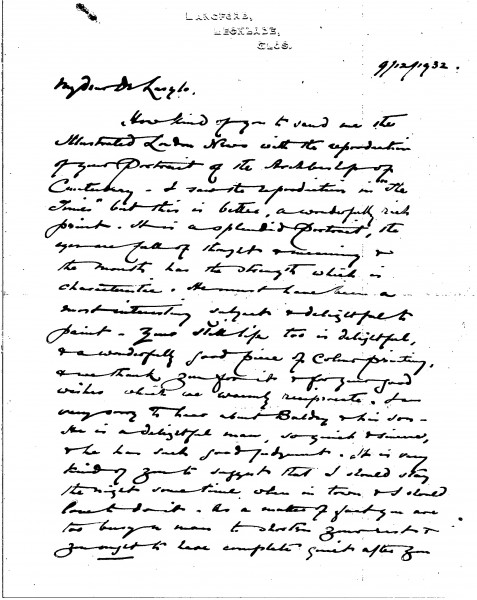 LANGFORD,
LECHLADE,
GLOS.
9/12/1932.
My dear De Laszlo.
How kind of you to send me the
Illustrated London News with the reproduction
of your Portrait of the Archbishop of
Canterbury – I saw the reproduction in "The
Times" but this is better, a wonderfully rich
print. It is a splendid Portrait, the
eyes are full of thought & meaning &
the mouth has the strength which is
characteristic. He must have been a
most interesting subject & delightful to
paint – Your Still life too is delightful,
& a wonderfully good piece of Colour printing,
& we thank you for it & for your good
wishes which we warmly reciprocate. I am
very sorry to hear about Baldry & his son –
He is a delightful man, so quick & sincere,
& he has such good judgment. It is very
kind of you to suggest that I should stay
the night some time when in town & I should
love to do it. As a matter of fact you are
too busy a man to shorten your rest &
you ought to have complete quiet after you